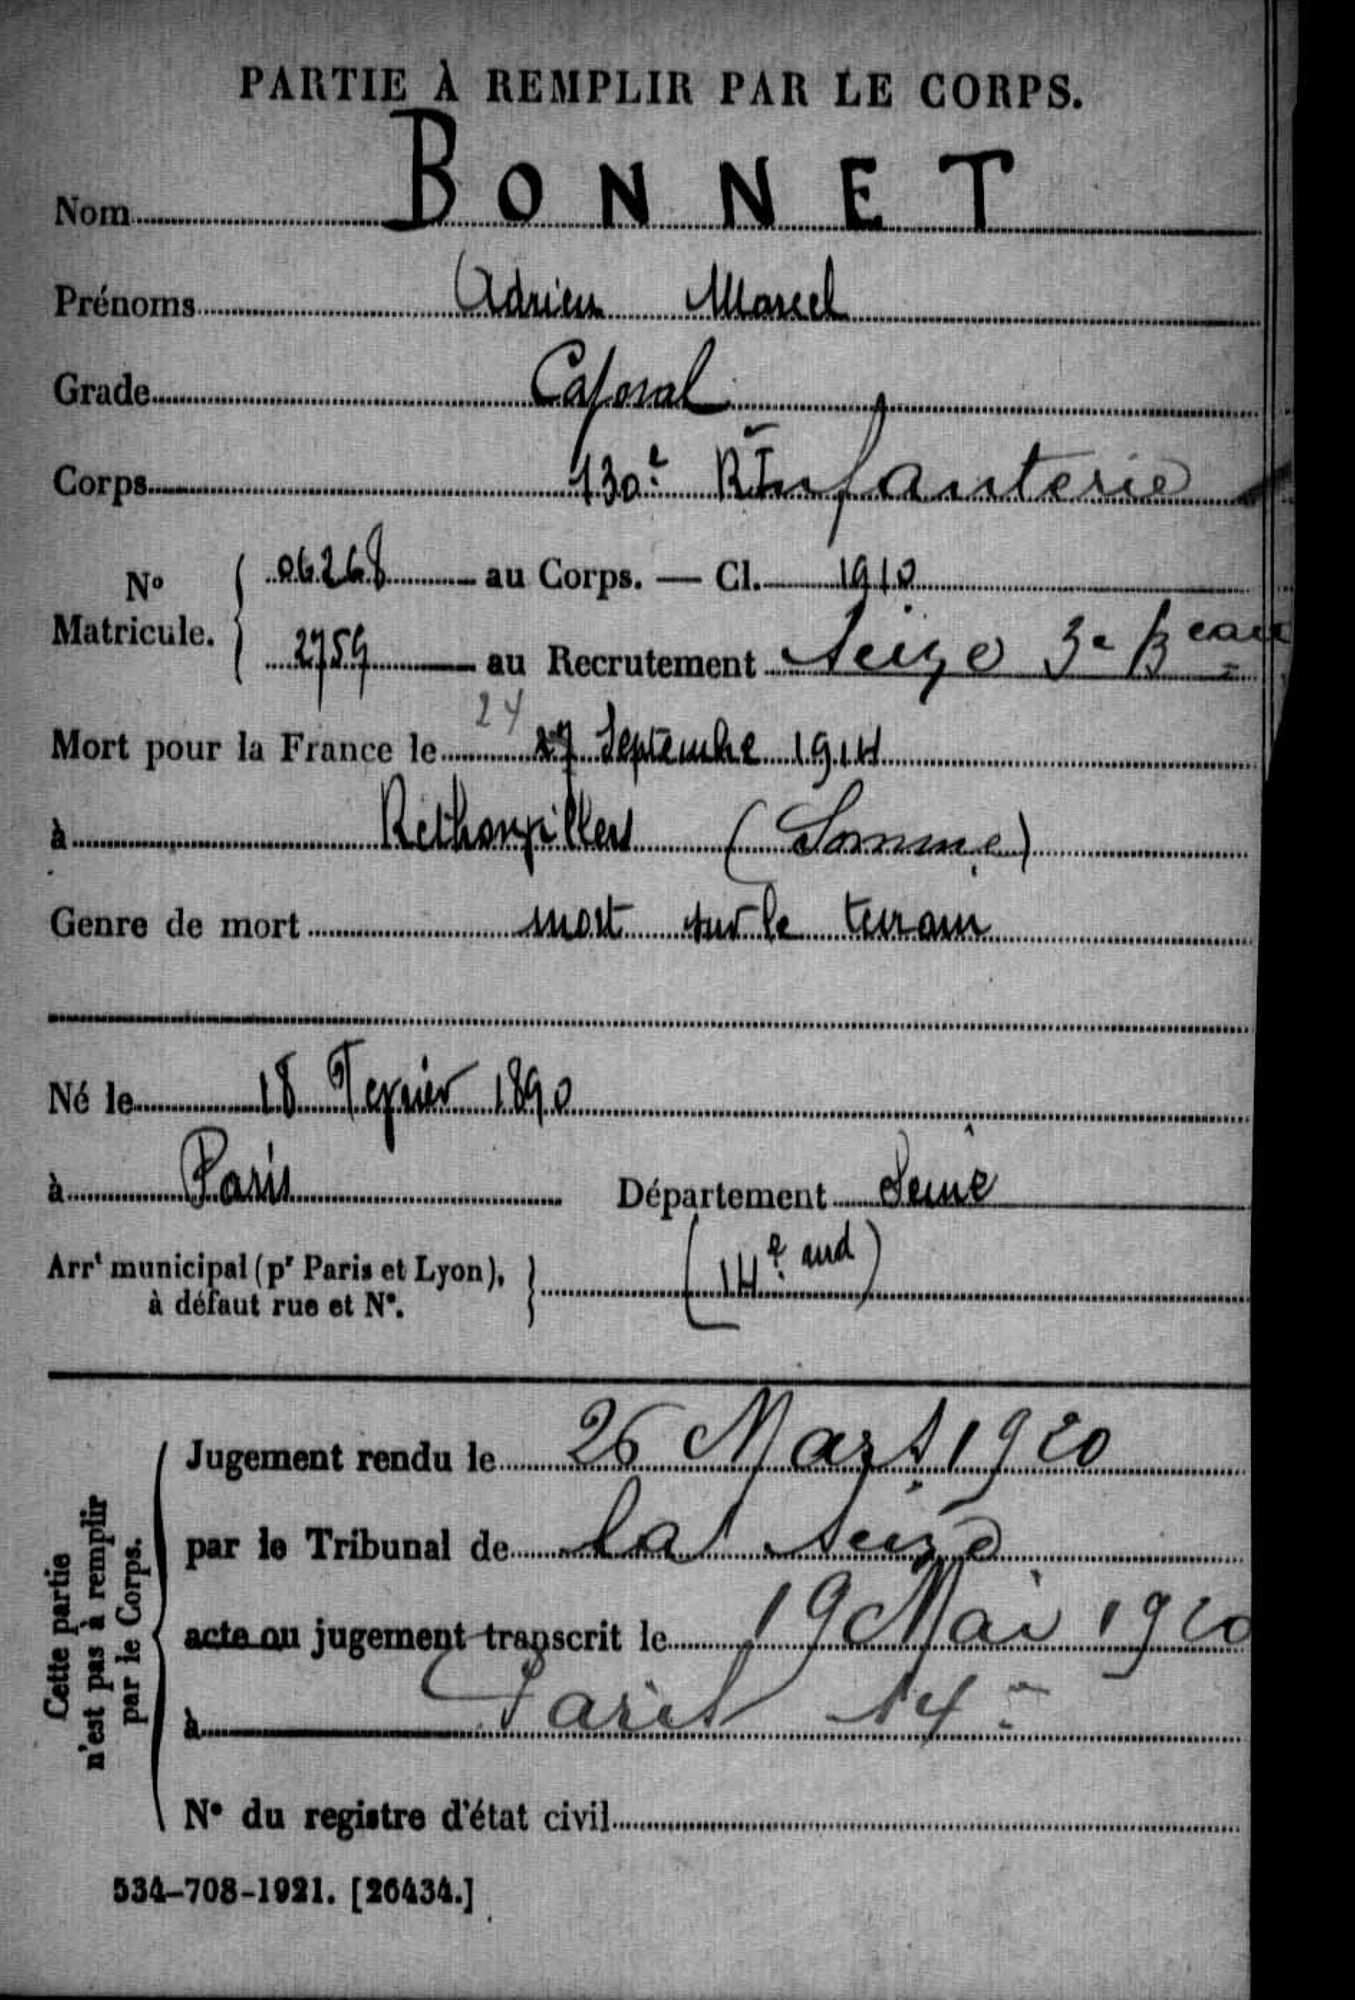 PARTIE À REMPLIR PAR LE CORPS.
Nom BONNET
Prénoms Adrien Marcel
Grade Caporal
Corps 130e R Infanterie
No Matricule. 06268 au Corps. — Cl. 1910
2759 au Recrutement Seine 3e Beau
24
Mort pour la France le 27 Septembre 1914
à Rethonvillers (Somme)
Genre de mort mort sur le terrain
Né le 18 Fevrier 1890
à Paris Département Seine
Arrt municipal (pr Paris et Lyon), (14e arrd)
à défaut rue et No.
Cette partie
n'est pas à remplir
par le Corps.
Jugement rendu le 26 Mars 1920
par le Tribunal de la Seine
acte ou jugement transcrit le 19 Mai 1920
à Paris 14e
No du registre d'état civil
534-708-1921. [26434.]